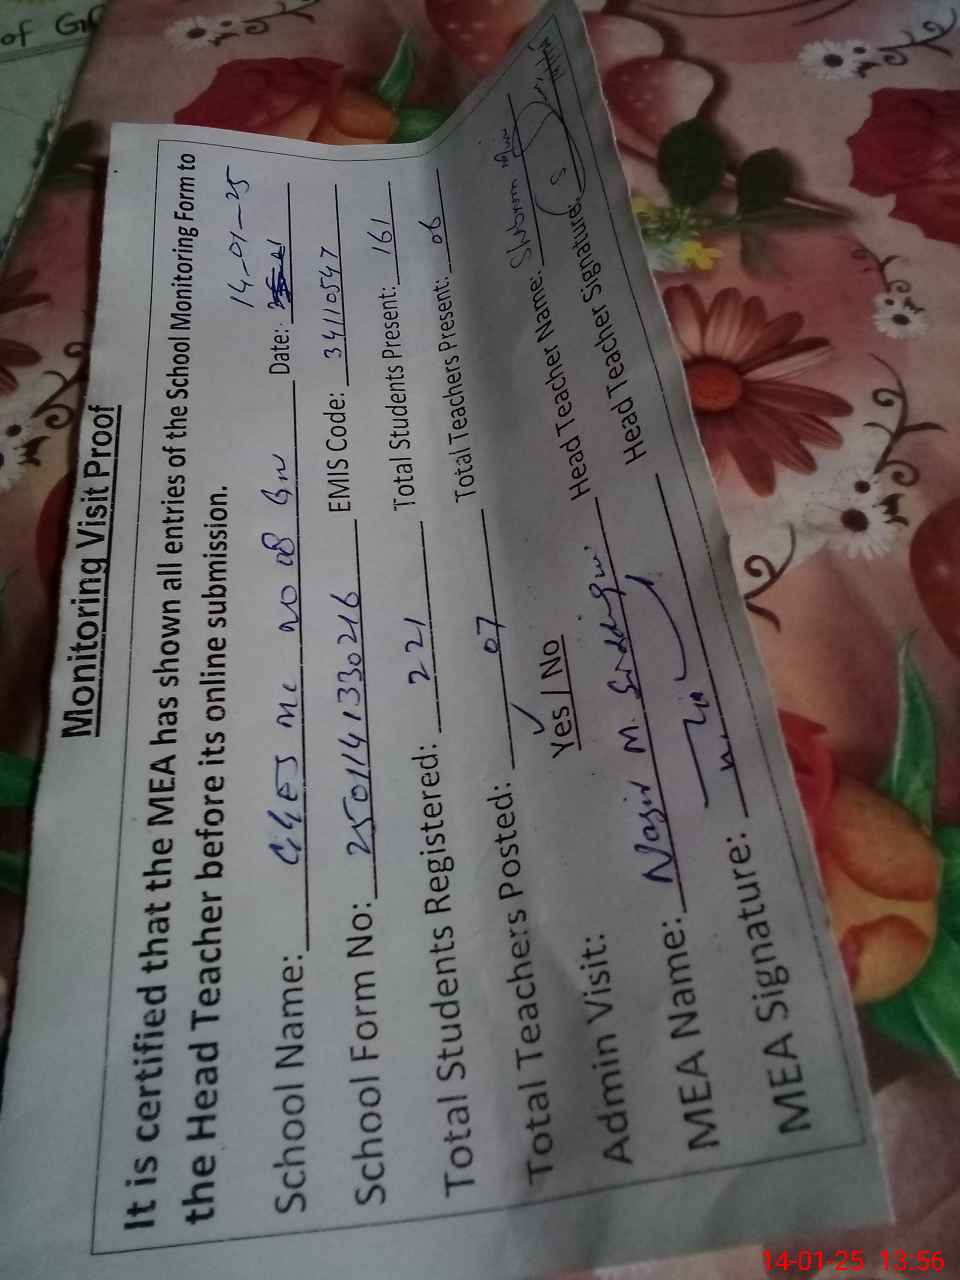 of
Monitoring Visit Proof
It is certified that the MEA has shown all entries of the School Monitoring Form to
the Head Teacher before its online submission.
14-01-25
School Name: MC NO 08 Date:
School Form No: 2501141330216 EMIS Code: 34110547
Total Students Registered: 221 Total Students Present: 161
Total Teachers Posted: 07 Total Teachers Present: 06
Admin Visit: Yes / No Head Teacher Name:
MEA Name: Nasir M. Head Teacher Signature:
MEA Signature:
14-01-25 13:56